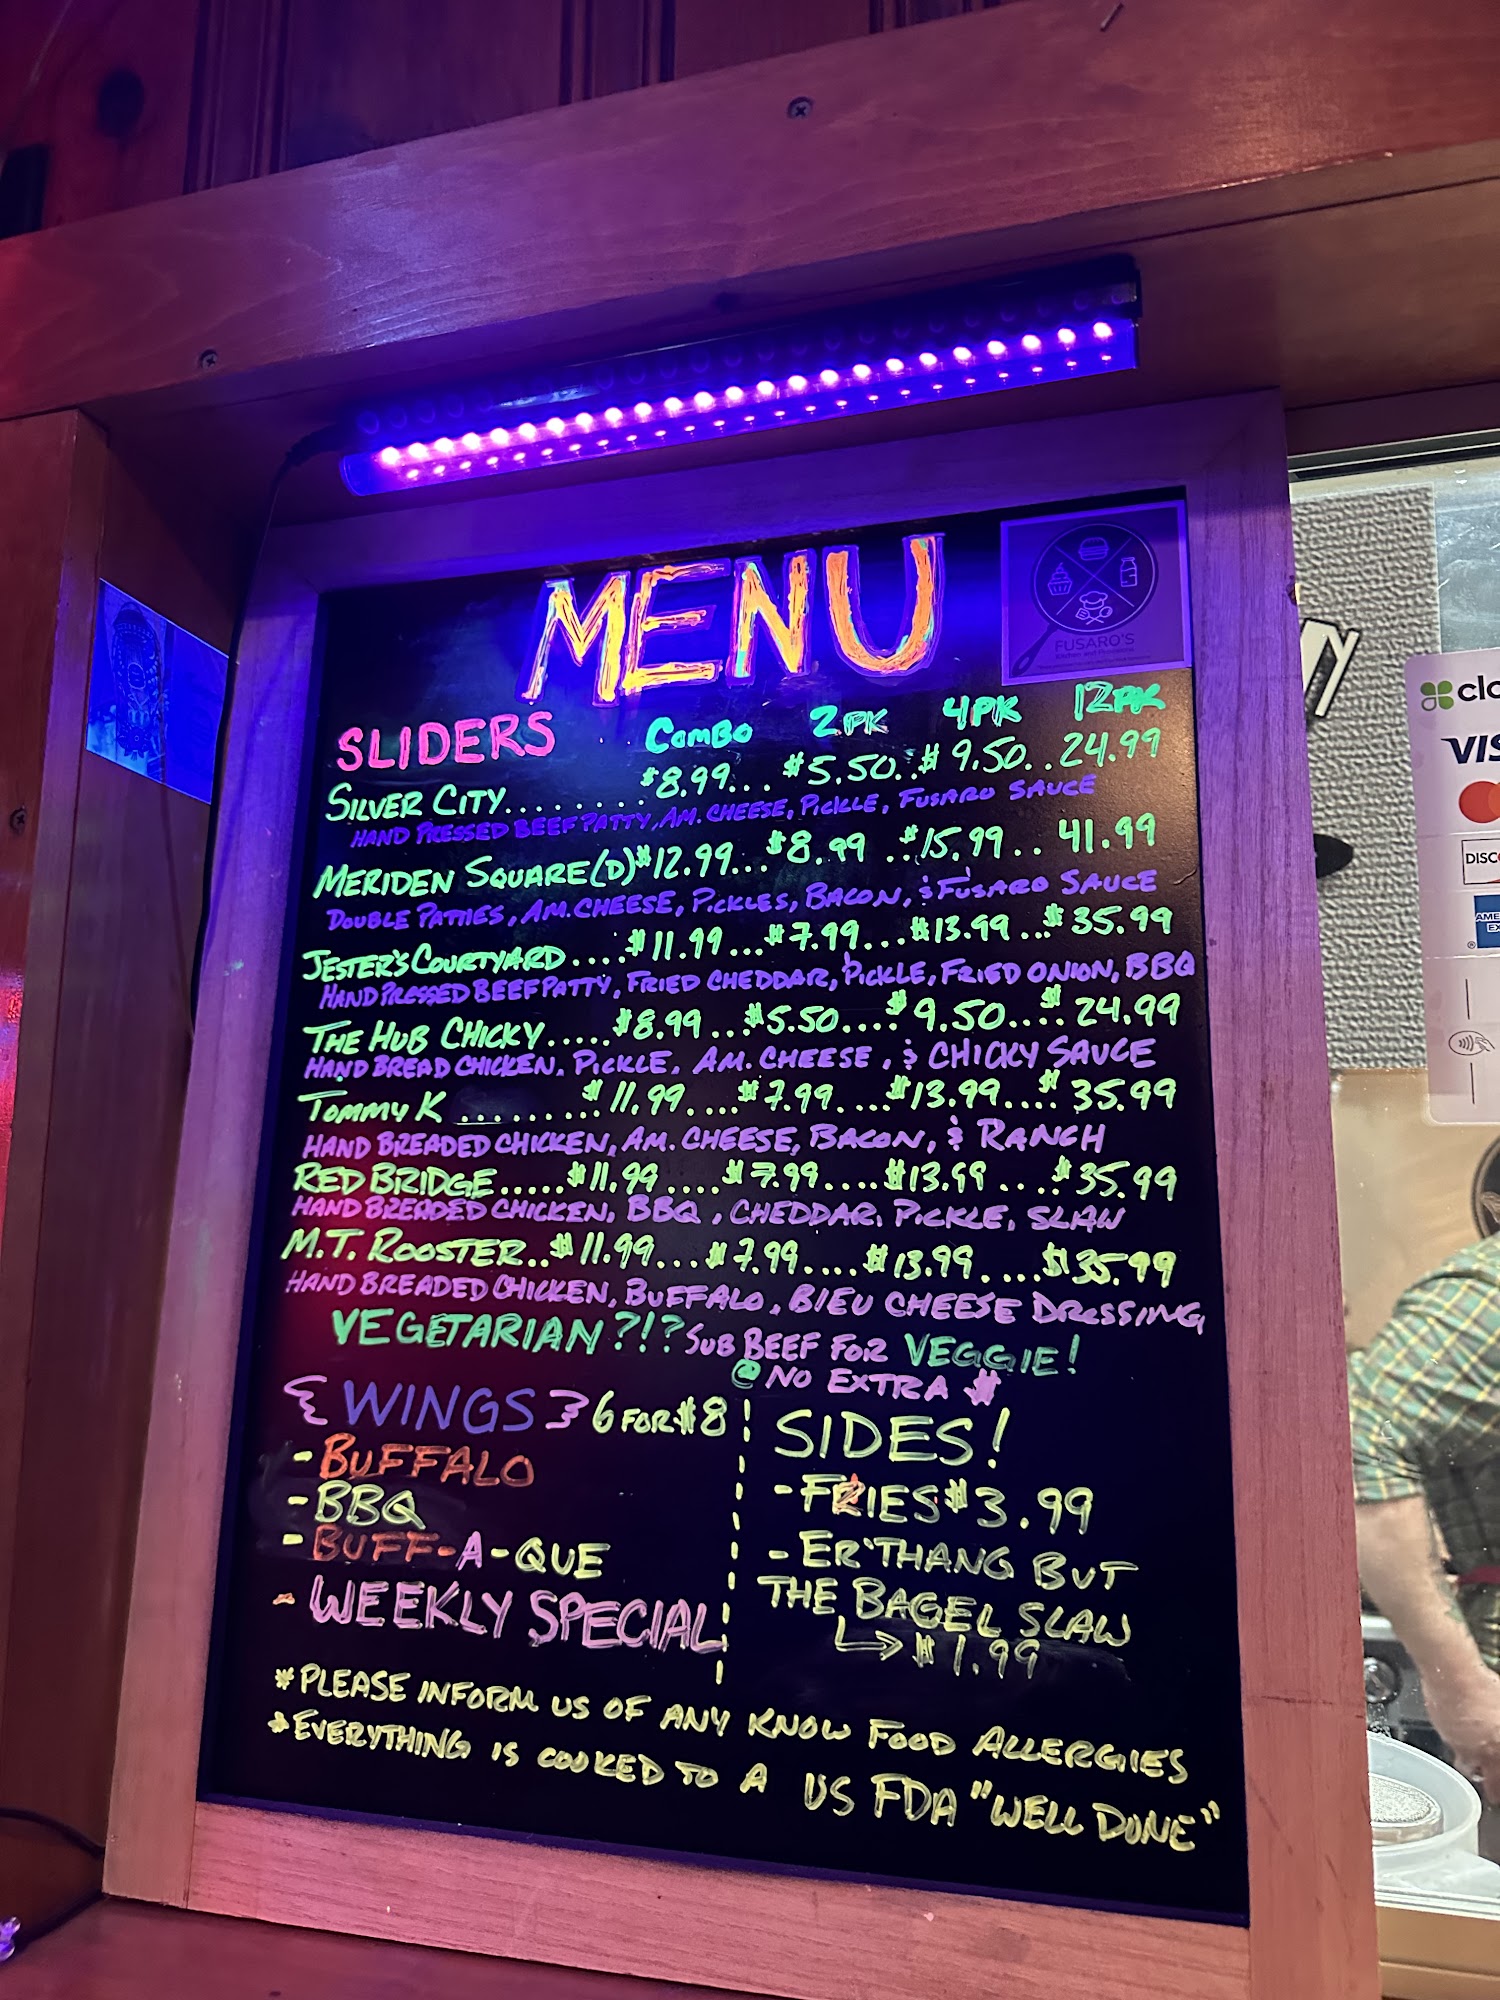 MENU
FUSARO'S
SLIDERS COMBO 2PK 4PK 12PK
SILVER CITY........$8.99...$5.50..$9.50..24.99
HAND PRESSED BEEF PATTY, AM. CHEESE, PICKLE, FUSARO SAUCE
MERIDEN SQUARE(D)$12.99...$8.99..$15.99..41.99
DOUBLE PATTIES, AM. CHEESE, PICKLES, BACON, & FUSARO SAUCE
JESTER'S COURTYARD....$11.99...$7.99...$13.99...$35.99
HAND PRESSED BEEF PATTY, FRIED CHEDDAR, PICKLE, FRIED ONION, BBQ
THE HUB CHICKY.....$8.99...$5.50....$9.50....$24.99
HAND BREAD CHICKEN, PICKLE, AM. CHEESE, & CHICKY SAUCE
TOMMY K........$11.99....$7.99....$13.99....$35.99
HAND BREADED CHICKEN, AM. CHEESE, BACON, & RANCH
RED BRIDGE.....$11.99....$7.99....$13.99....$35.99
HAND BREADED CHICKEN, BBQ, CHEDDAR, PICKLE, SLAW
M.T. ROOSTER..$11.99...$7.99....$13.99....$35.99
HAND BREADED CHICKEN, BUFFALO, BLEU CHEESE DRESSING
VEGETARIAN?!? SUB BEEF FOR VEGGIE!
@ NO EXTRA $
WINGS 6 FOR $8
- BUFFALO
- BBQ
- BUFF-A-QUE
- WEEKLY SPECIAL
SIDES!
- FRIES $3.99
- ER'THANG BUT
THE BAGEL SLAW
$1.99
*PLEASE INFORM US OF ANY KNOW FOOD ALLERGIES
*EVERYTHING IS COOKED TO A US FDA "WELL DONE"
clo
VIS
DISC
AME
EX